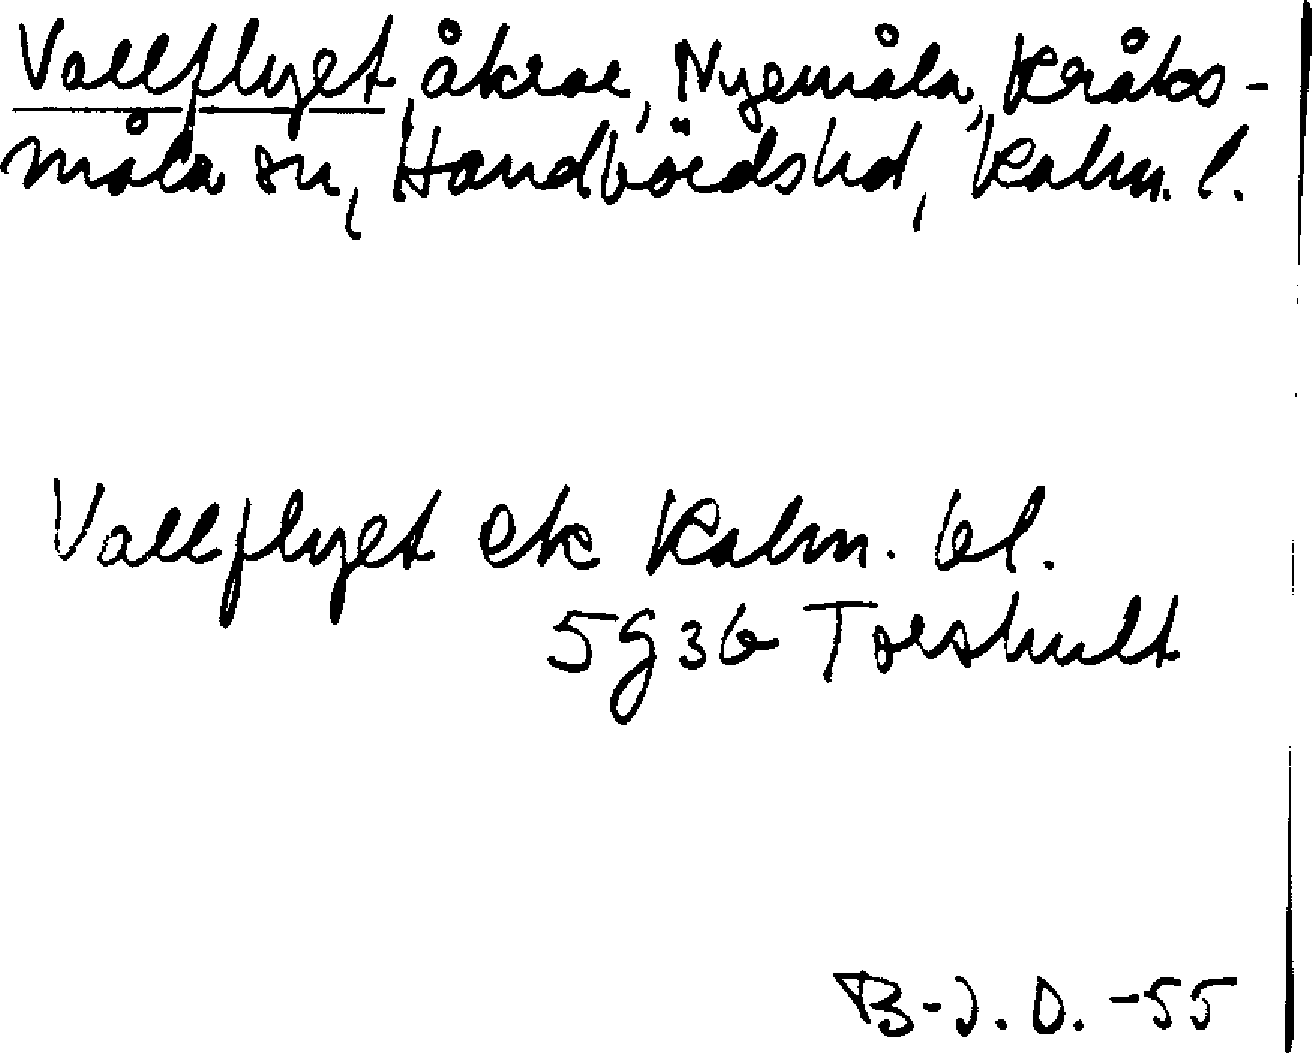 Vallflyet, åkrar, Nyemåla, Kråks-
måla sn, Handbörds hd, Kalm. l.
Vallflyet ek Kalm. bl.
5g36 Torshult
B-J. D. -55